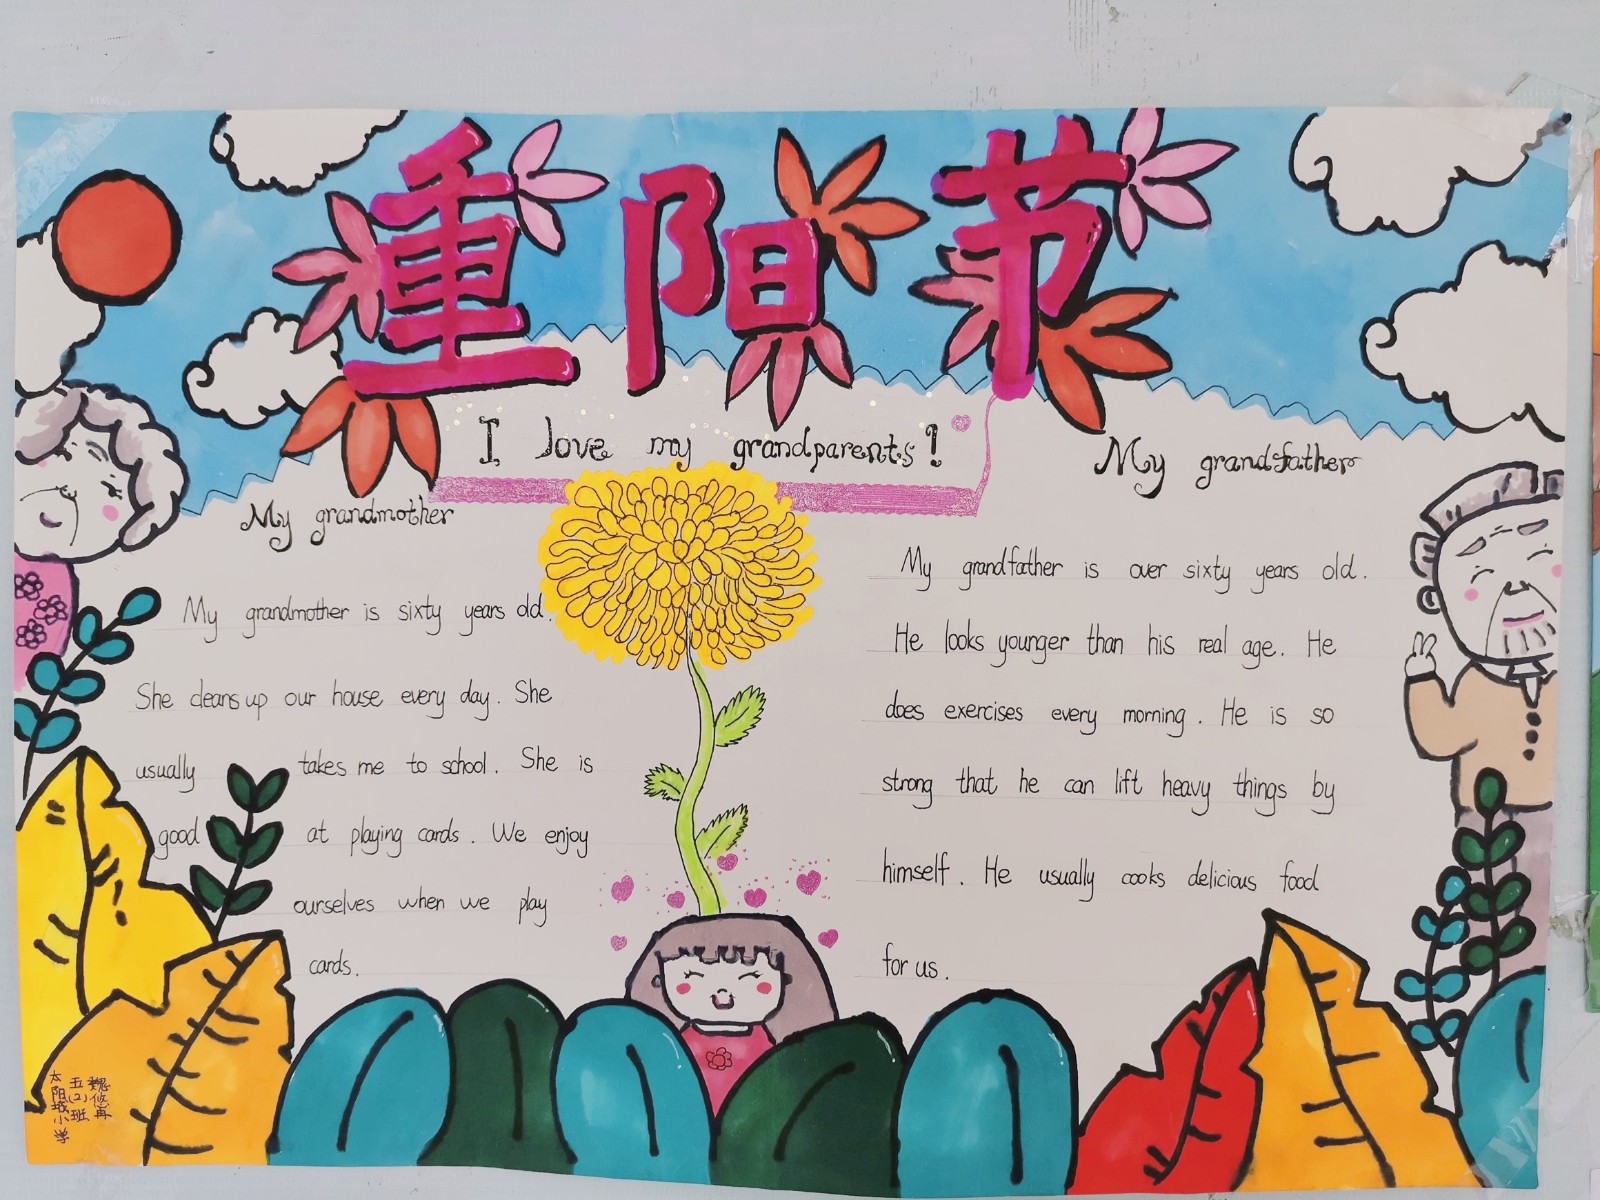 重阳节
I love my grandparents!
My grandmother
My grandmother is sixty years old.
She cleans up our house every day. She
usually takes me to school. She is
good at playing cards. We enjoy
ourselves when we play
cards.
My grandfather
My grandfather is over sixty years old.
He looks younger than his real age. He
does exercises every morning. He is so
strong that he can lift heavy things by
himself. He usually cooks delicious food
for us.
太阳城小学
五(2)班
魏悠冉